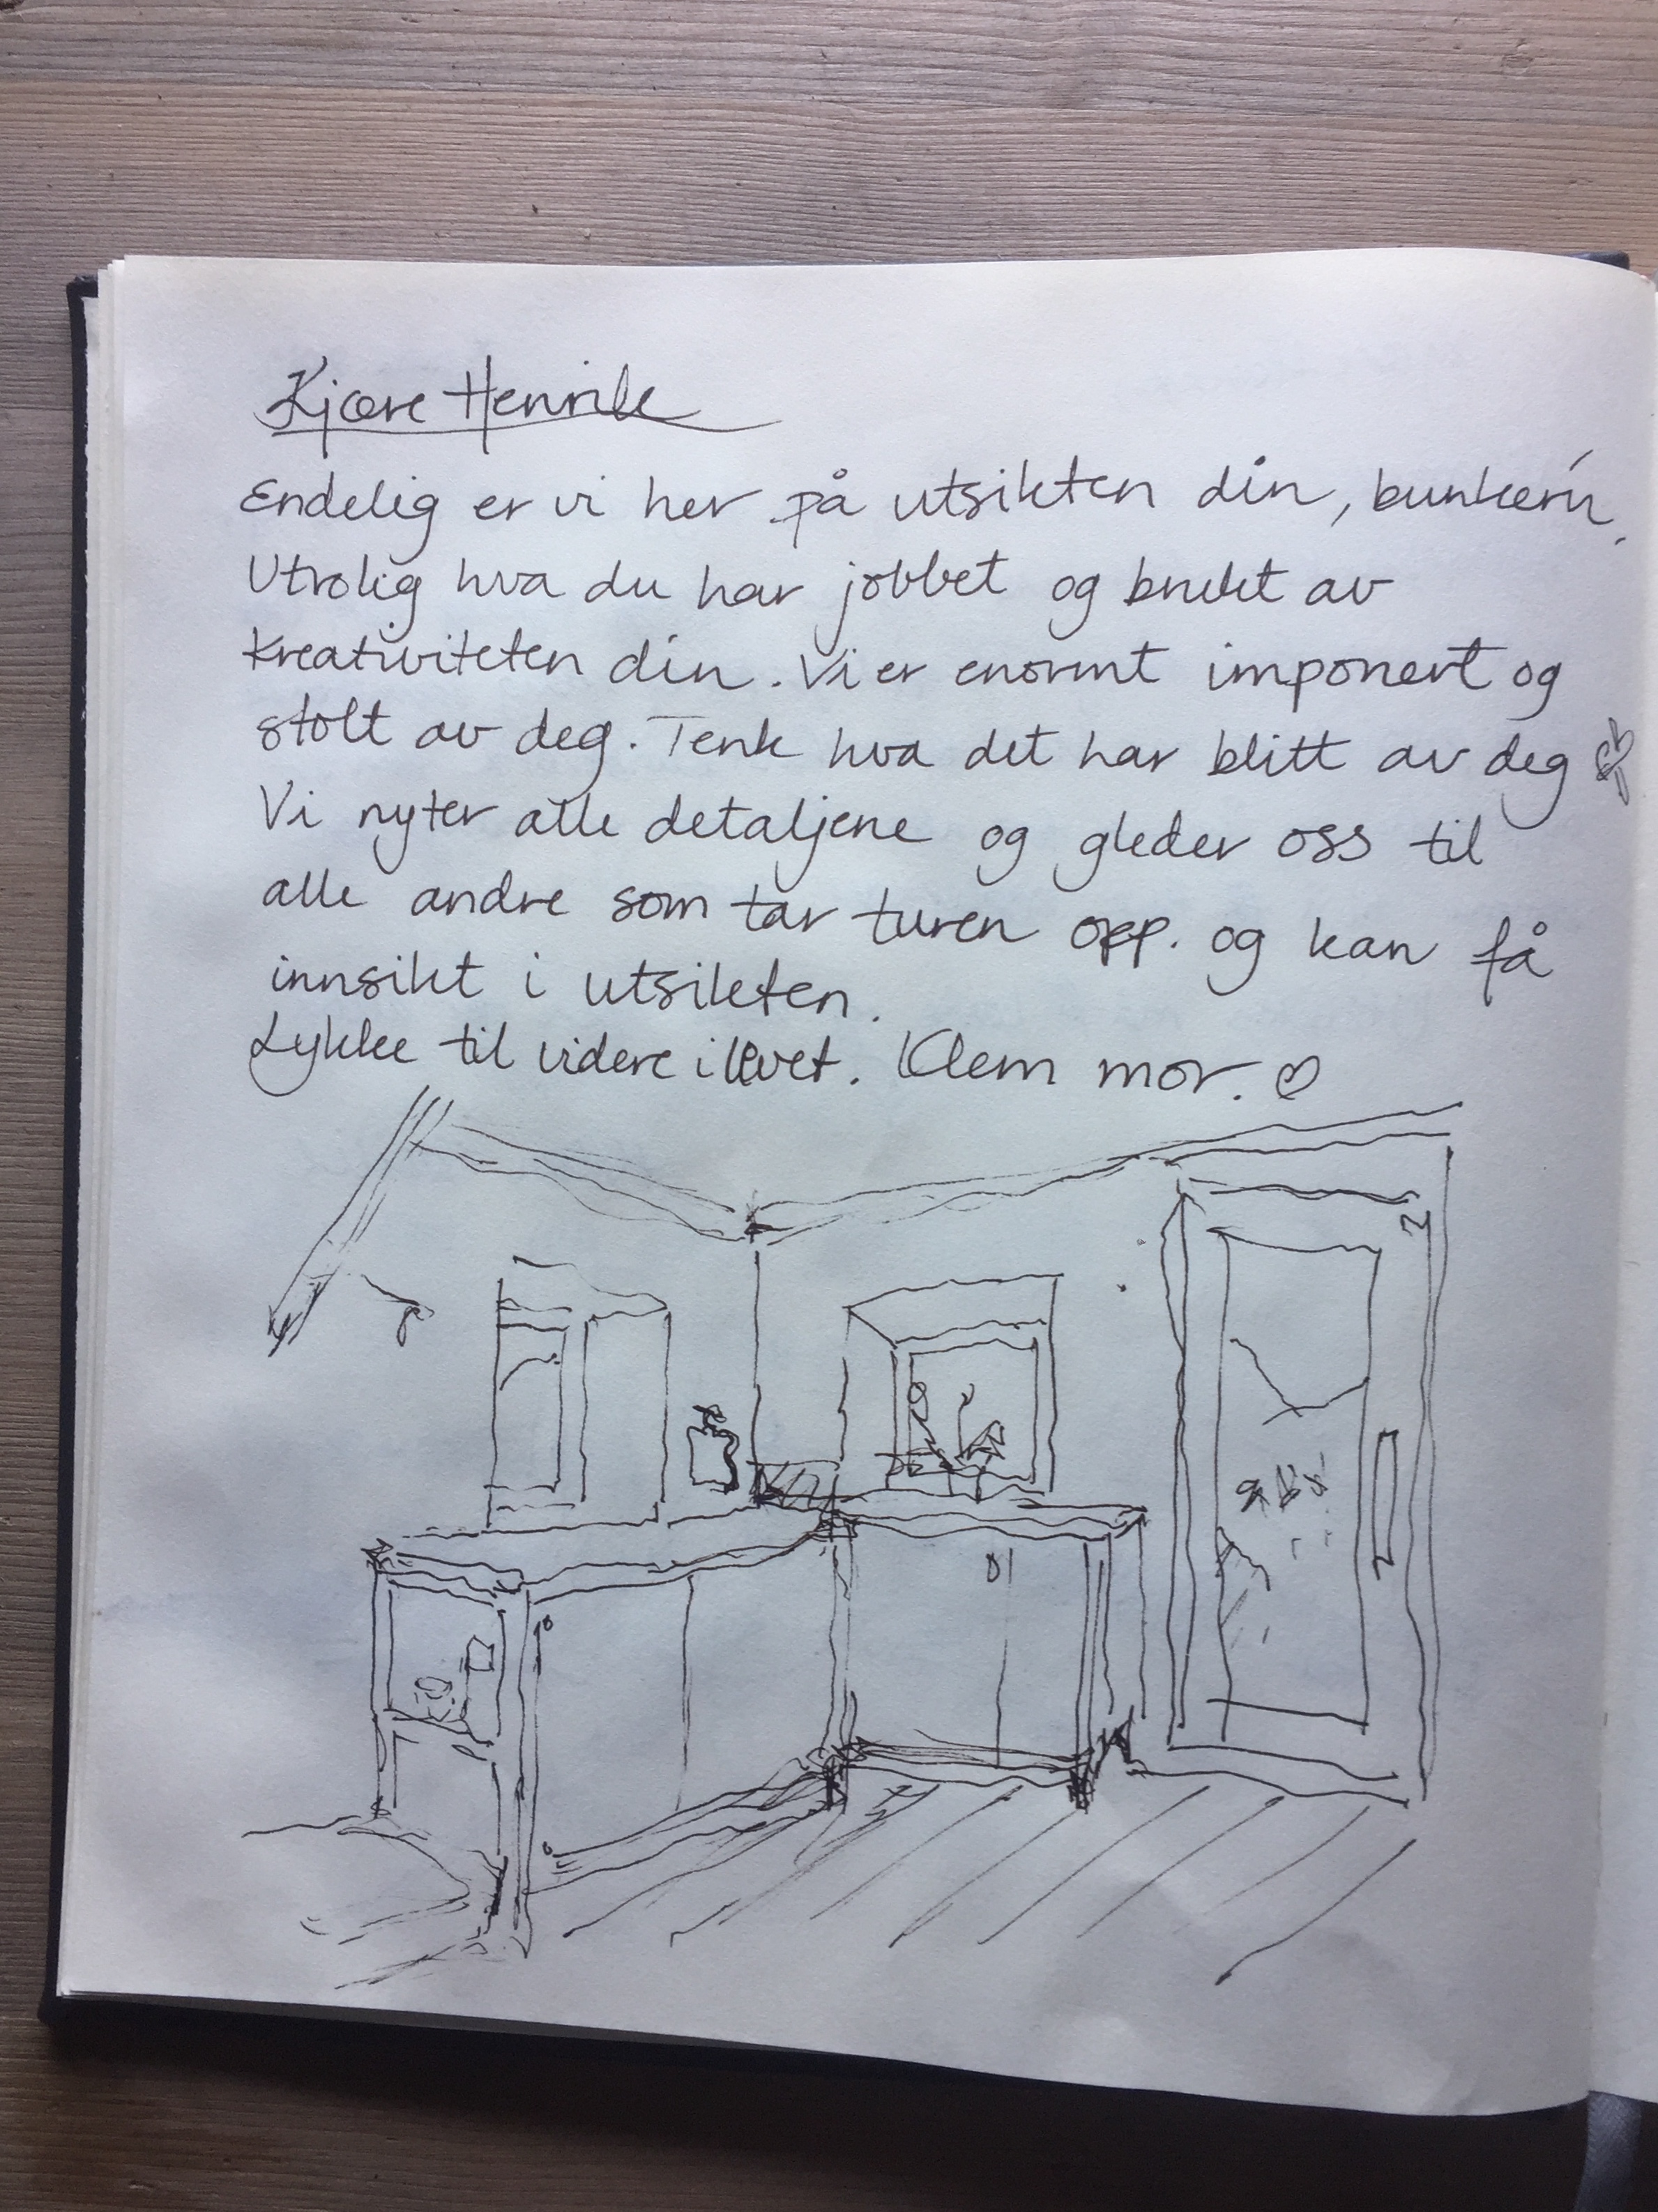 Kjære Henrik
Endelig er vi her på utsikten din, bunkern.
Utrolig hva du har jobbet og brukt av
kreativiteten din. Vi er enormt imponert og
stolt av deg. Tenk hva det har blitt av deg
Vi nyter alle detaljene og gleder oss til
alle andre som tar turen opp. og kan få
innsikt i utsikten.
Lykke til videre i livet. Klem mor. ♡